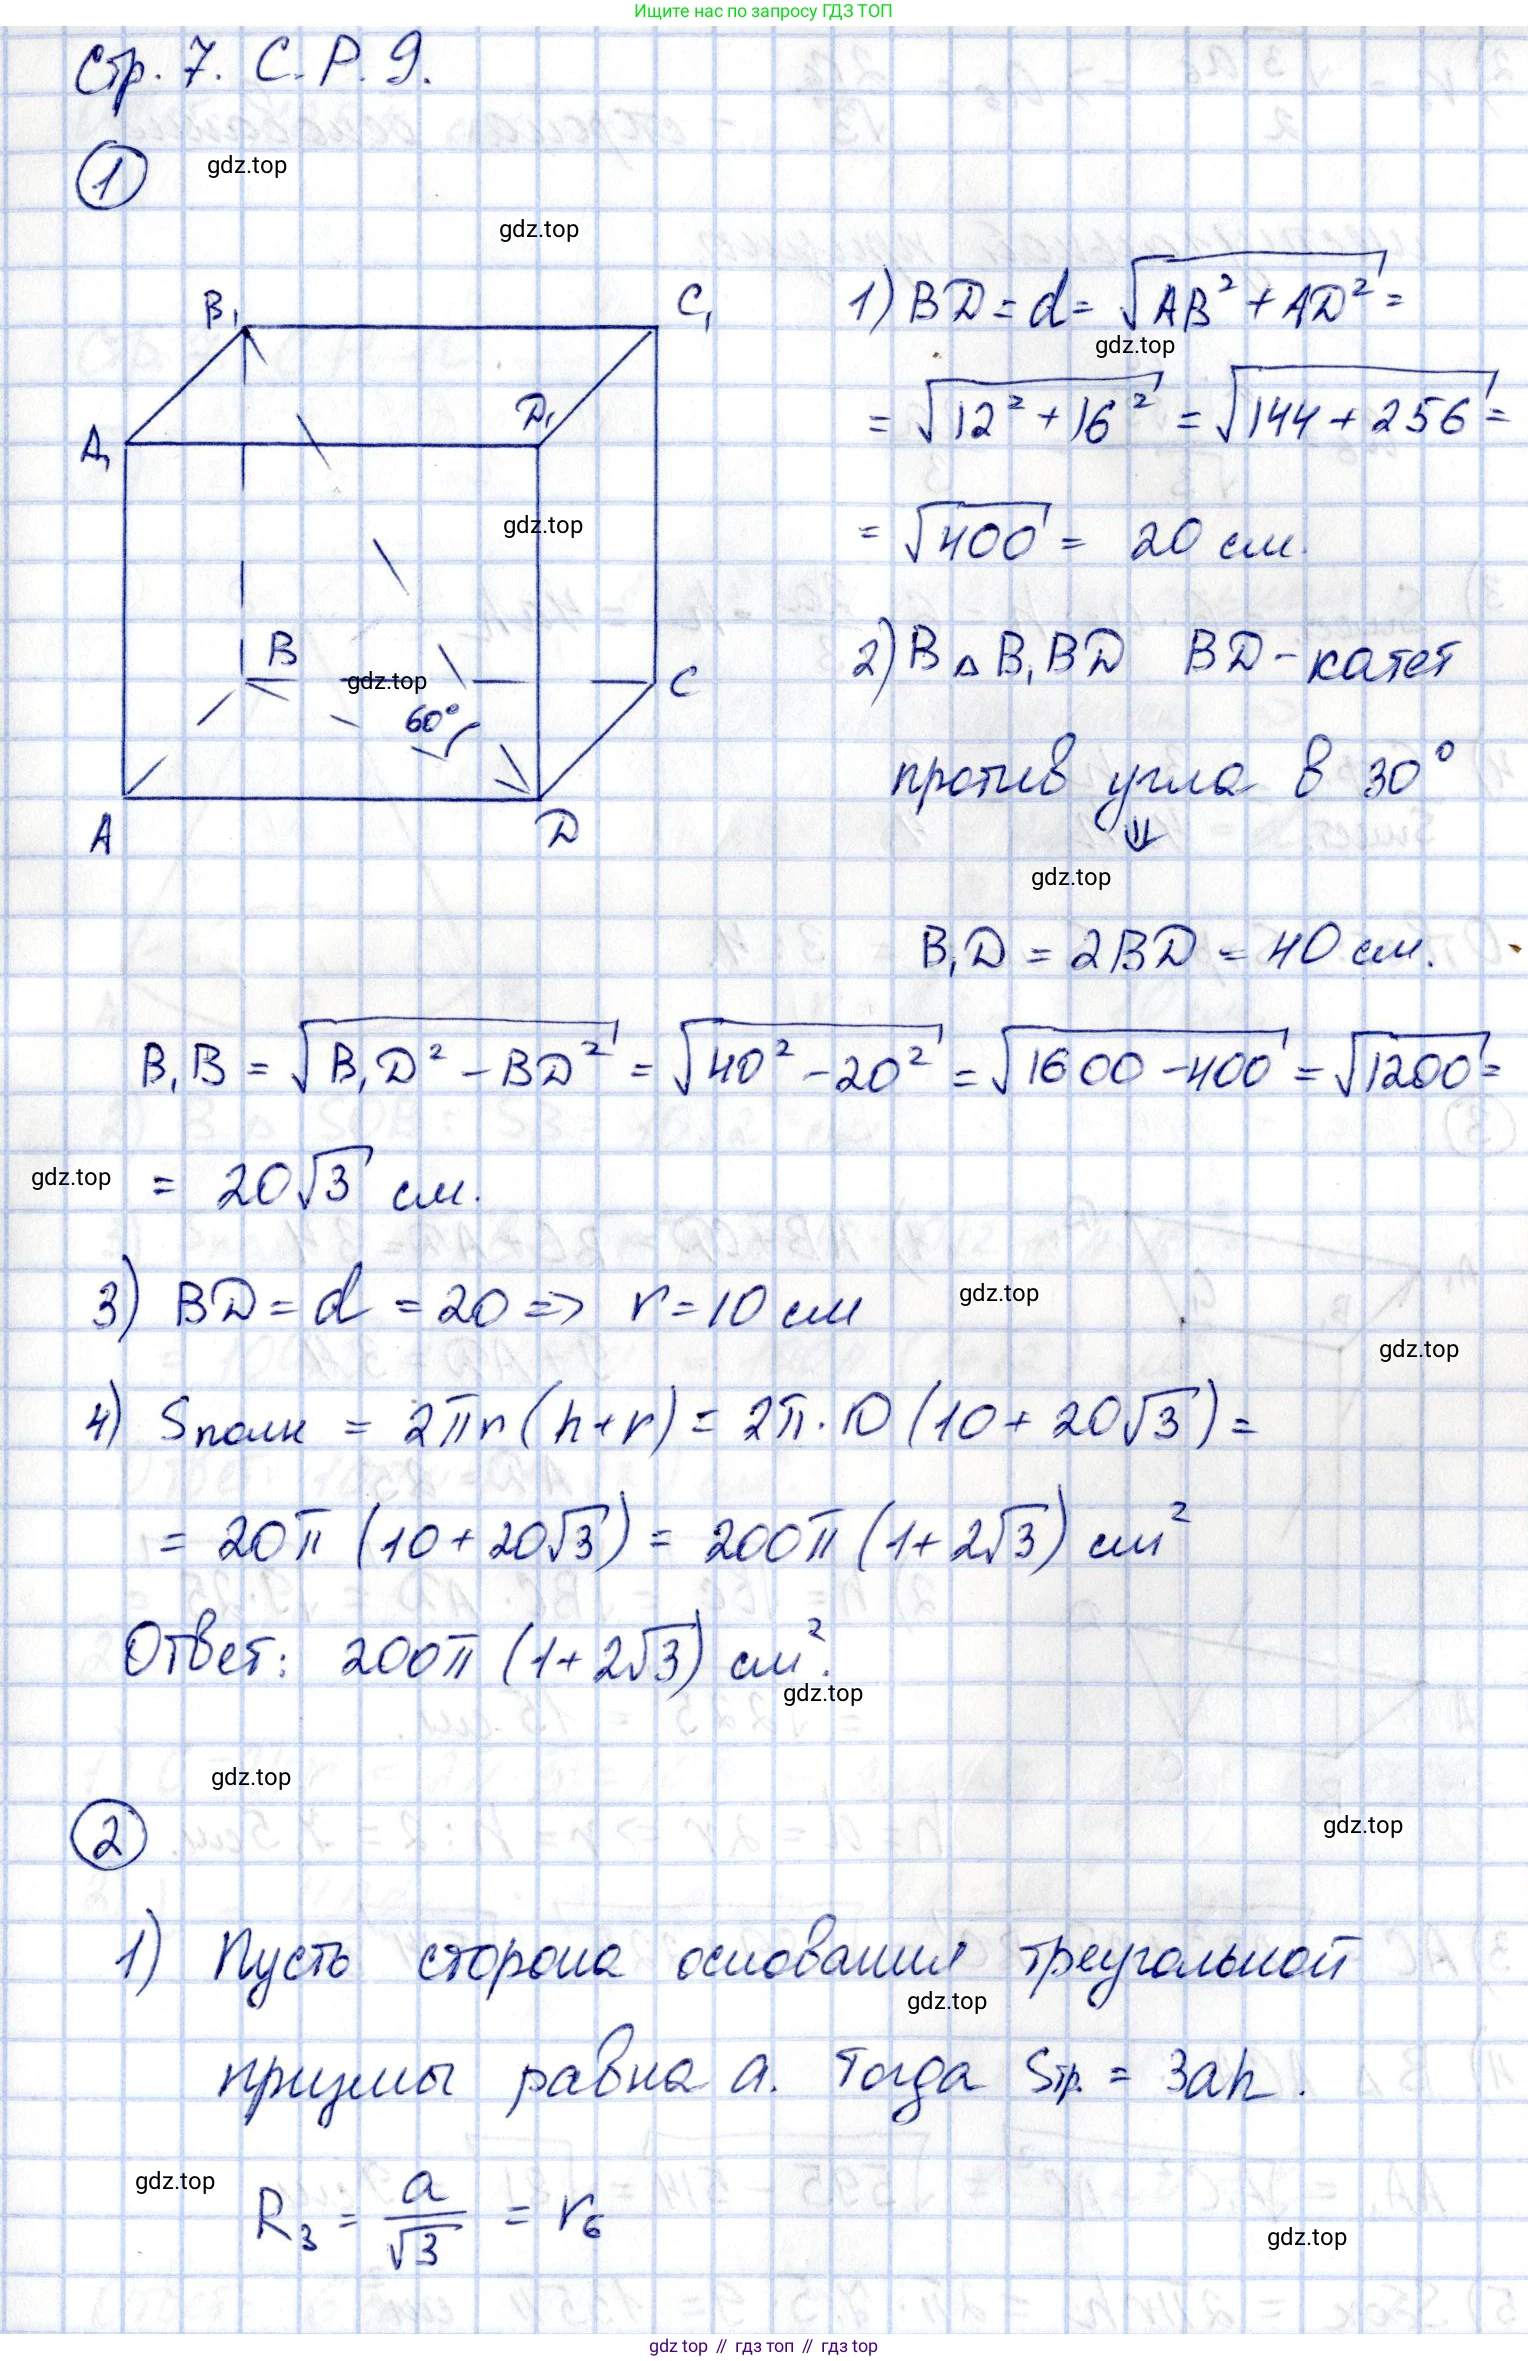 Ищите нас по запросу ГДЗ ТОП
Стр. 7. С. Р. 9.
1
gdz.top
gdz.top
B₁ C₁
1) BD = d = √(AB² + AD²) =
gdz.top
A₁ D₁
= √(12² + 16²) = √(144 + 256) =
gdz.top
= √400 = 20 см.
B
2) В △ B₁BD BD - катет
gdz.top
C
60°
против угла в 30°
A D
⇓
gdz.top
B₁D = 2BD = 40 см.
B₁B = √(B₁D² - BD²) = √(40² - 20²) = √(1600 - 400) = √1200 =
gdz.top
= 20√3 см.
3) BD = d = 20 => r = 10 см
gdz.top
gdz.top
4) Sполн = 2πr (h + r) = 2π · 10 (10 + 20√3) =
= 20π (10 + 20√3) = 200π (1 + 2√3) см²
Ответ: 200π (1 + 2√3) см².
gdz.top
gdz.top
2
gdz.top
1) Пусть сторона основания треугольной
gdz.top
призмы равна a. Тогда Sтр. = 3ah.
gdz.top
R₃ = a/√3 = r₆
gdz.top
gdz top // гдз топ // гдз top